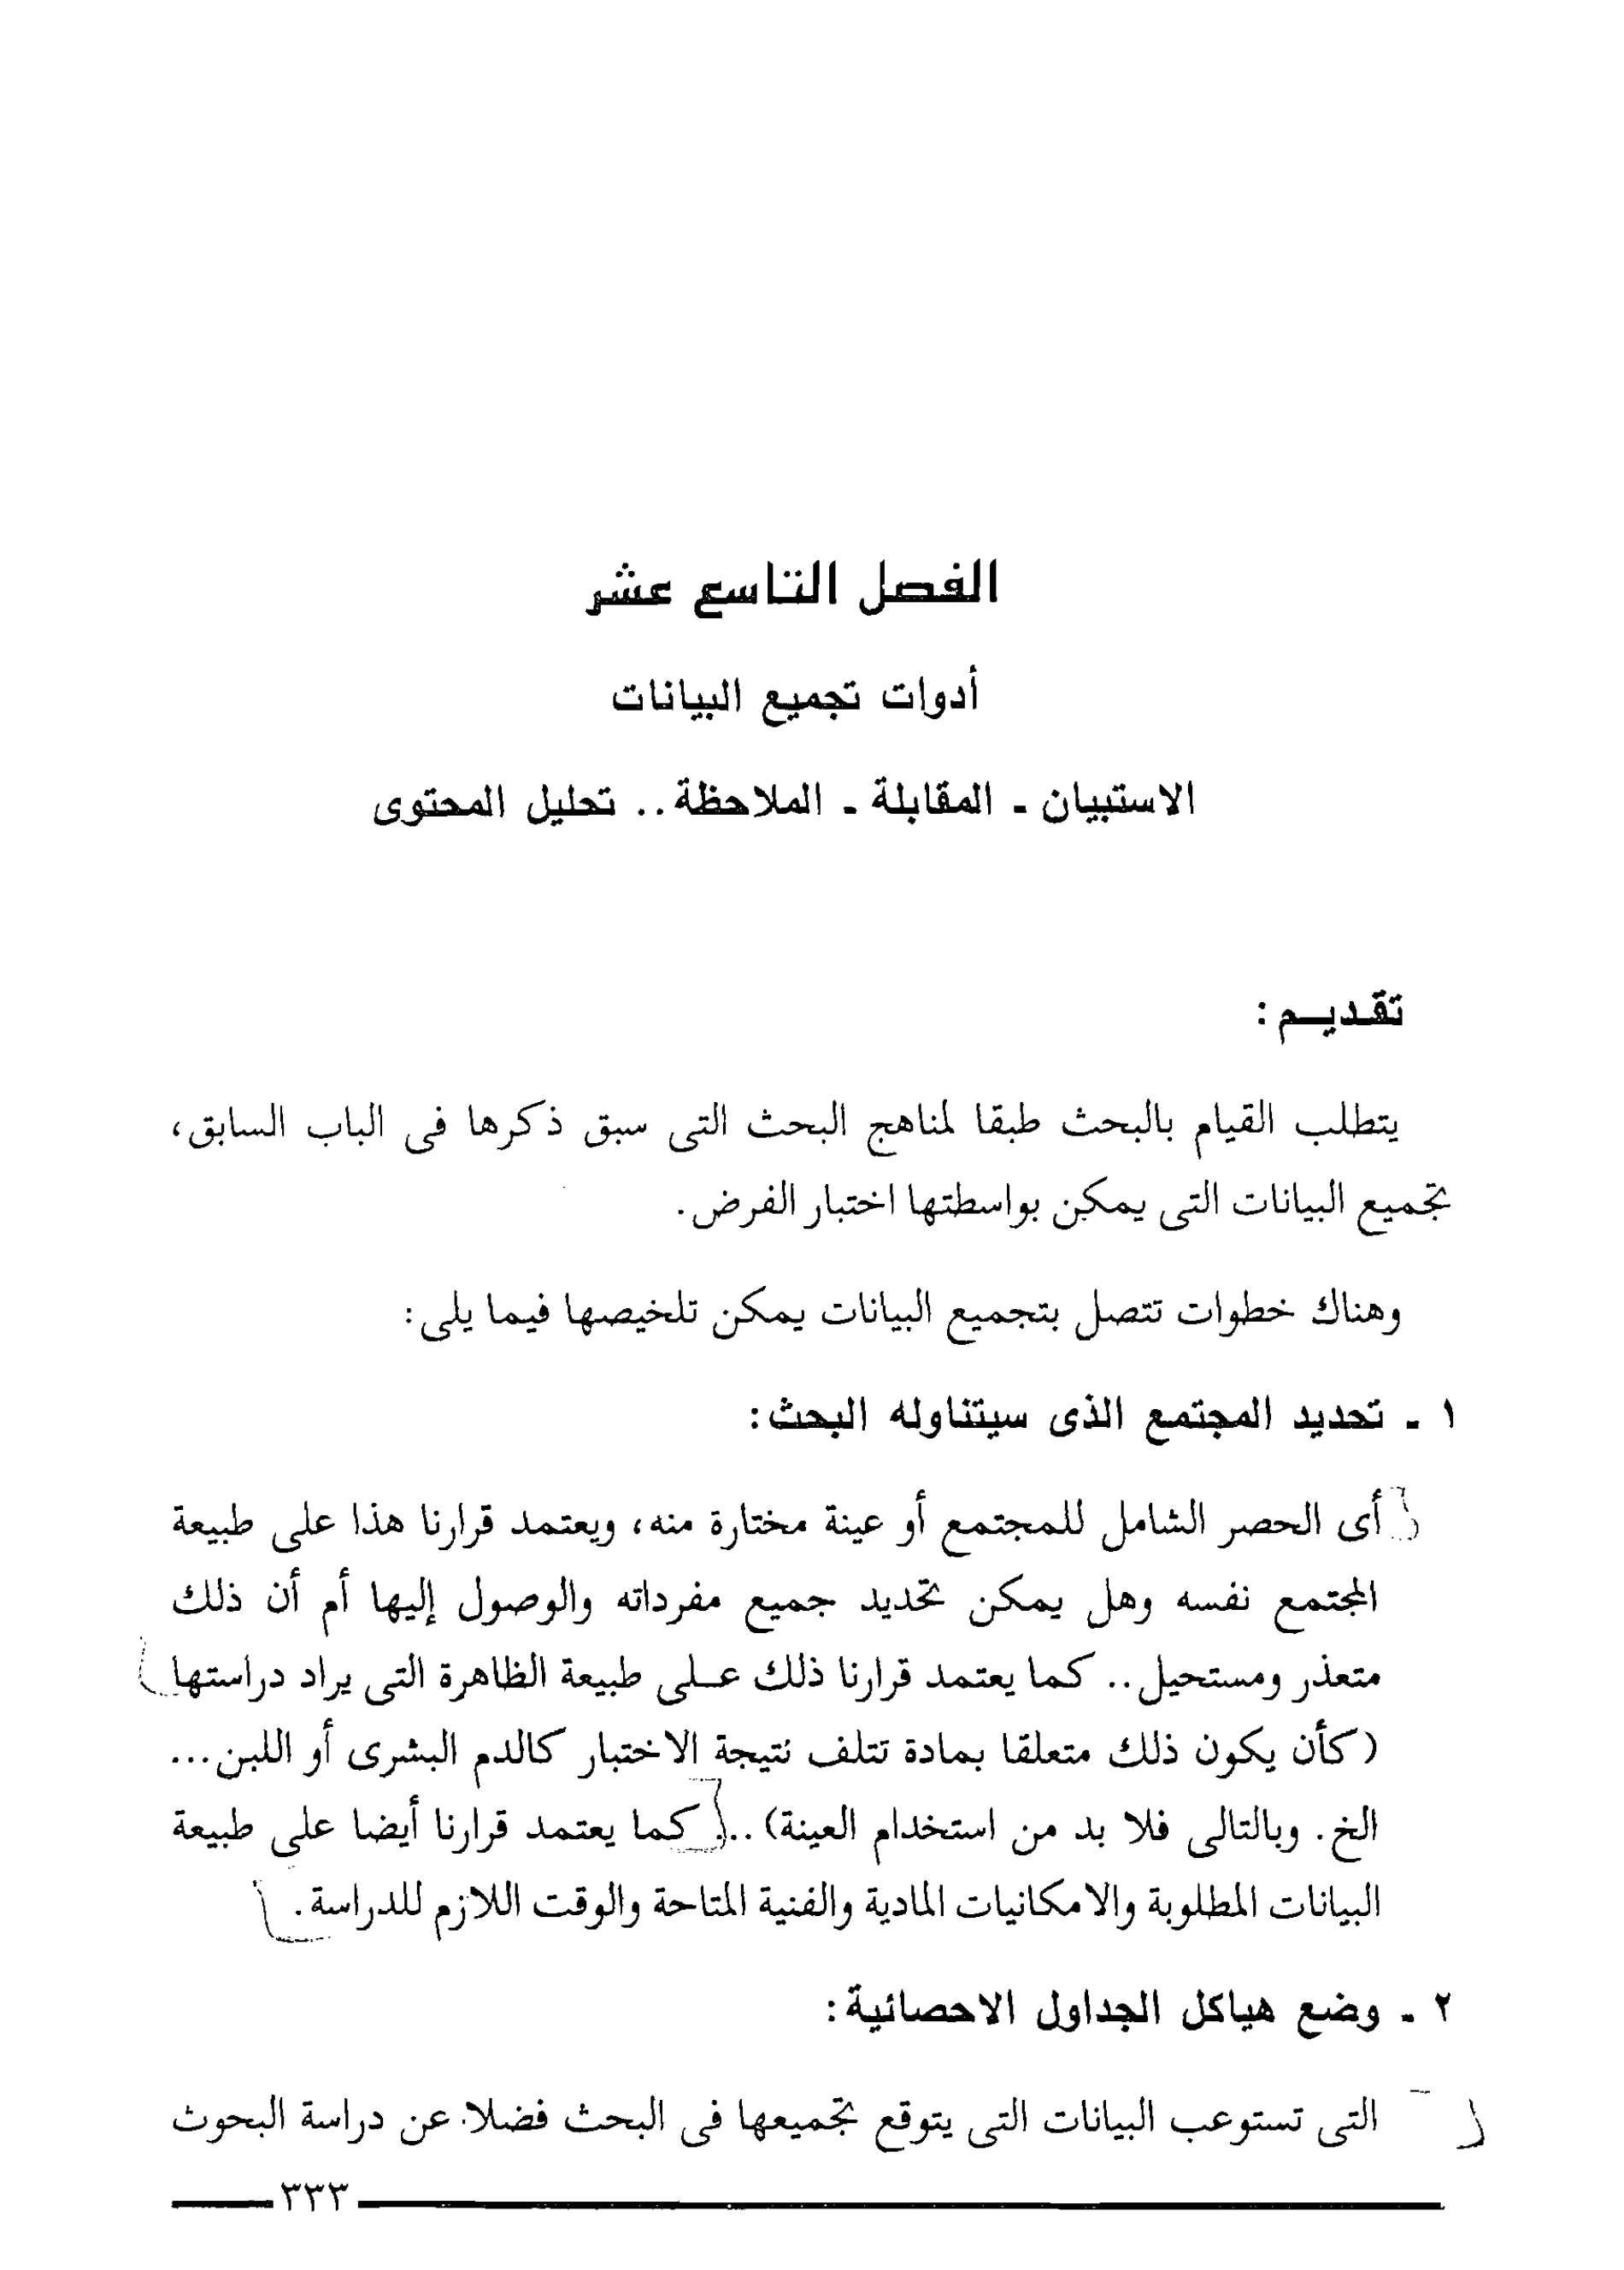 الفصل التاسع عشر
أدوات تجميع البيانات
الاستبيان - المقابلة - الملاحظة .. تحليل المحتوى
تقديم :
يتطلب القيام بالبحث طبقا لمناهج البحث التى سبق ذكرها فى الباب السابق،
تجميع البيانات التى يمكن بواسطتها اختبار الفرض.
وهناك خطوات تتصل بتجميع البيانات يمكن تلخيصها فيما يلى :
١ - تحديد المجتمع الذى سيتناوله البحث :
أى الحصر الشامل للمجتمع أو عينة مختارة منه، ويعتمد قرارنا هذا على طبيعة
المجتمع نفسه وهل يمكن تحديد جميع مفرداته والوصول إليها أم أن ذلك
متعذر ومستحيل .. كما يعتمد قرارنا ذلك على طبيعة الظاهرة التى يراد دراستها
(كأن يكون ذلك متعلقا بمادة تتلف نتيجة الاختبار كالدم البشرى أو اللبن ...
الخ. وبالتالى فلا بد من استخدام العينة) .. كما يعتمد قرارنا أيضا على طبيعة
البيانات المطلوبة والامكانيات المادية والفنية المتاحة والوقت اللازم للدراسة.
٢ - وضع هياكل الجداول الاحصائية :
التى تستوعب البيانات التى يتوقع تجميعها فى البحث فضلا عن دراسة البحوث
٣٣٣